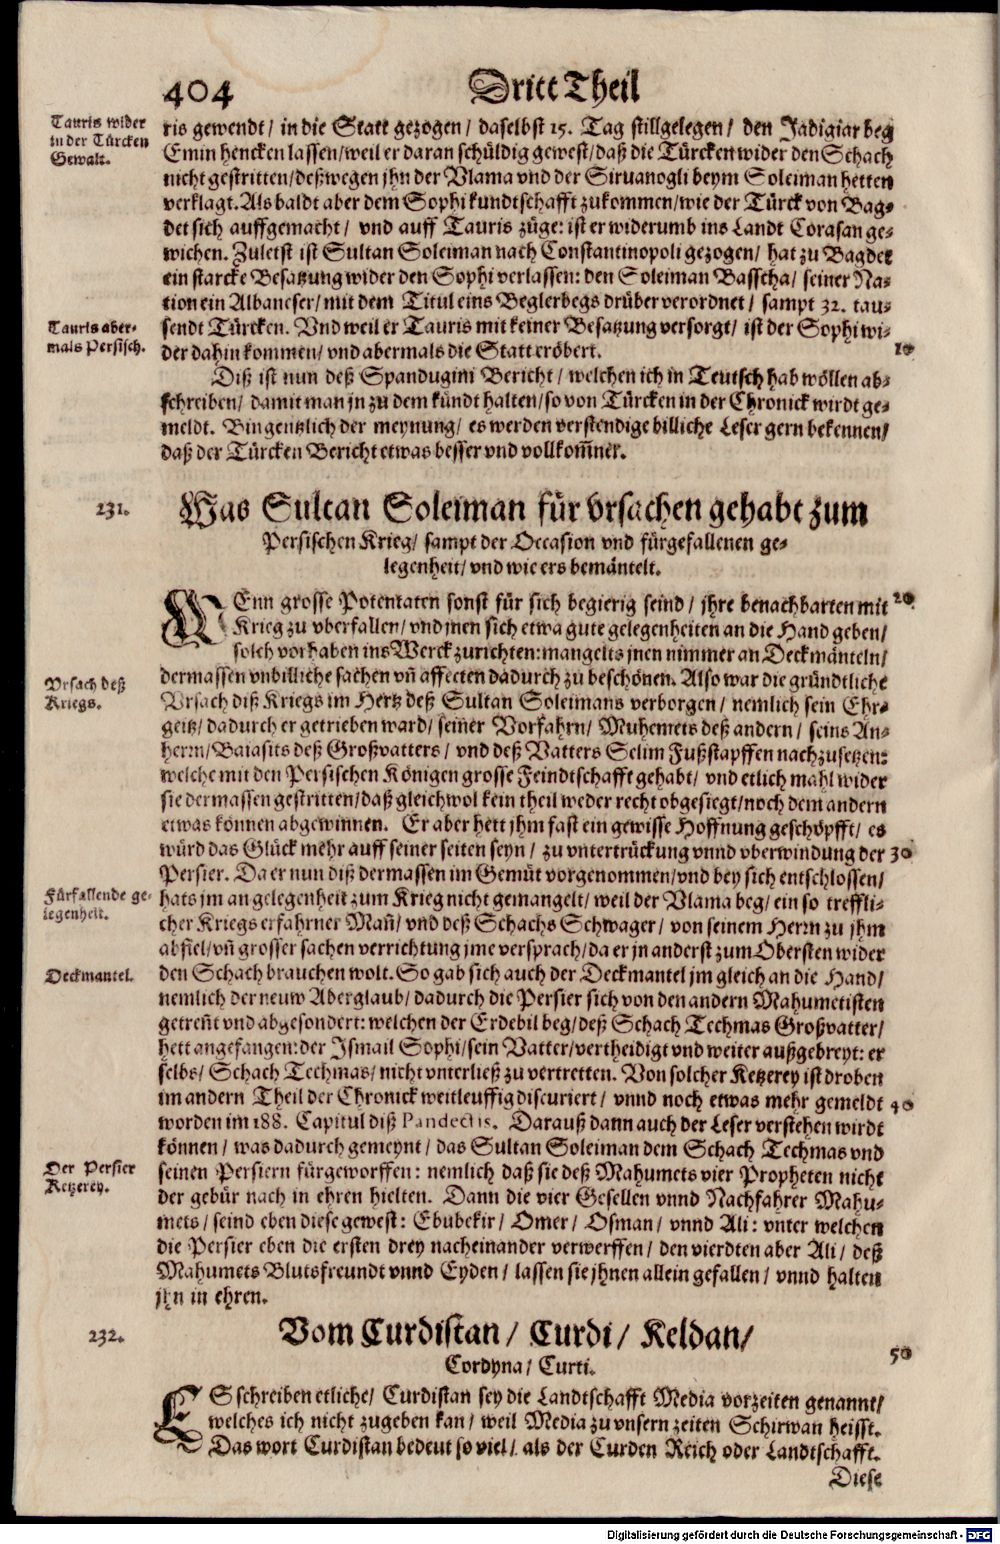 404 Dritt Theil
Tauris wider
in der Türcken
Gewalt.
ris gewendt/ in die Statt gezogen/ daselbst 15. Tag stillgelegen/ den Jadigiar beg
Emin hencken lassen/weil er daran schüldig gewest/daß die Türcken wider den Schach
nicht gestritten/deßwegen jhn der Vlama vnd der Siruanogli beym Soleiman hetten
verklagt. Als baldt aber dem Sophi kundtschafft zukommen/wie der Türck von Bag-
det sich auffgemacht/ vnd auff Tauris züge: ist er widerumb ins Landt Corasan ge-
wichen. Zuletst ist Sultan Soleiman nach Constantinopoli gezogen/ hat zu Bagdet
ein starcke Besatzung wider den Sophi verlassen: den Soleiman Basscha/ seiner Na-
tion ein Albaneser/ mit dem Titul eins Beglerbegs drüber verordnet/ sampt 32. tau-
Tauris aber-
mals Persisch.
sendt Türcken. Vnd weil er Tauris mit keiner Besatzung versorgt/ ist der Sophi wi-
der dahin kommen/ vnd abermals die Statt eröbert.
10
Diß ist nun deß Spandugini Bericht/ welchen ich in Teutsch hab wöllen ab-
schreiben/ damit man jn zu dem kündt halten/ so von Türcken in der Chronick wirdt ge-
meldt. Bin gentzlich der meynung/ es werden verstendige billiche Leser gern bekennen/
daß der Türcken Bericht etwas besser vnd vollkom̃ner.
231.
Was Sultan Soleiman für vrsachen gehabt zum
Persischen Krieg/ sampt der Occasion vnd fürgefallenen ge-
legenheit/ vnd wie ers bemäntelt.
WEnn grosse Potentaten sonst für sich begierig seind/ jhre benachbarten mit
20
Krieg zu vberfallen/ vnd jnen sich etwa gute gelegenheiten an die Hand geben/
solch vorhaben ins Werck zurichten: mangelts jnen nimmer an Deckmänteln/
dermassen vnbilliche sachen vñ affecten dadurch zu beschönen. Also war die gründtliche
Vrsach deß
Kriegs.
Vrsach diß Kriegs im Hertz deß Sultan Soleimans verborgen/ nemlich sein Ehr-
geitz/ dadurch er getrieben ward/ seiner Vorfahrn/ Muhemets deß andern/ seins An-
herrn/ Baiasits deß Großvatters/ vnd deß Vatters Selim Fußstapffen nachzusetzen:
welche mit den Persischen Königen grosse Feindtschafft gehabt/ vnd etlich mahl wider
sie dermassen gestritten/ daß gleichwol kein theil weder recht obgesiegt/ noch dem andern
etwas können abgewinnen. Er aber hett jhm fast ein gewisse Hoffnung geschöpfft/ es
würd das Glück mehr auff seiner seiten seyn/ zu vntertrückung vnnd vberwindung der
30
Persier. Da er nun diß dermassen im Gemüt vorgenommen/ vnd bey sich entschlossen/
Fürfallende ge-
legenheit.
hats jm an gelegenheit zum Krieg nicht gemangelt/ weil der Vlama beg/ ein so treffli-
cher Kriegs erfahrner Mañ/ vnd deß Schachs Schwager/ von seinem Herrn zu jhm
abfiel/ vñ grosser sachen verrichtung jme versprach/ da er jn anderst zum Obersten wider
Deckmantel.
den Schach brauchen wolt. So gab sich auch der Deckmantel jm gleich an die Hand/
nemlich der neuw Aberglaub/ dadurch die Persier sich von den andern Mahumetisten
getreñt vnd abgesondert: welchen der Erdebil beg/ deß Schach Techmas Großvatter/
hett angefangen: der Ismail Sophi/ sein Vatter/ vertheidigt vnd weiter außgebreyt: er
selbs/ Schach Techmas/ nicht vnterließ zu vertretten. Von solcher Ketzerey ist droben
im andern Theil der Chronick weitleuffig discuriert/ vnnd noch etwas mehr gemeldt
40
worden im 188. Capitul diß Pandectis. Darauß dann auch der Leser verstehen wirdt
können/ was dadurch gemeynt/ das Sultan Soleiman dem Schach Techmas vnd
Der Persier
Ketzerey.
seinen Persiern fürgeworffen: nemlich daß sie deß Mahumets vier Propheten nicht
der gebür nach in ehren hielten. Dann die vier Gesellen vnnd Nachfahrer Mahu-
mets/ seind eben diese gewest: Ebubekir/ Omer/ Osman/ vnnd Ali: vnter welchen
die Persier eben die ersten drey nacheinander verwerffen/ den vierdten aber Ali/ deß
Mahumets Blutsfreundt vnnd Eyden/ lassen sie jhnen allein gefallen/ vnnd halten
jhn in ehren.
232.
Vom Curdistan/ Curdi/ Keldan/
Cordyna/ Curti.
50
ES schreiben etliche/ Curdistan sey die Landtschafft Media vorzeiten genannt/
welches ich nicht zugeben kan/ weil Media zu vnsern zeiten Schirwan heisst.
Das wort Curdistan bedeut so viel/ als der Curden Reich oder Landtschafft.
Diese
Digitalisierung gefördert durch die Deutsche Forschungsgemeinschaft - DFG